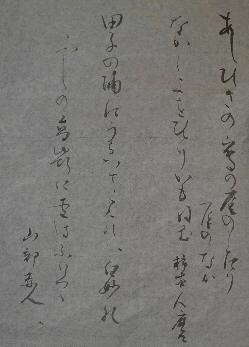 あしひきの山鳥の尾のしたり
尾のなか
なかし夜をひとりかもねむ 柿本人麿
田子の浦にうちいてゝみれは白妙の
ふしの高嶺に雪はふりつゝ
山部赤人